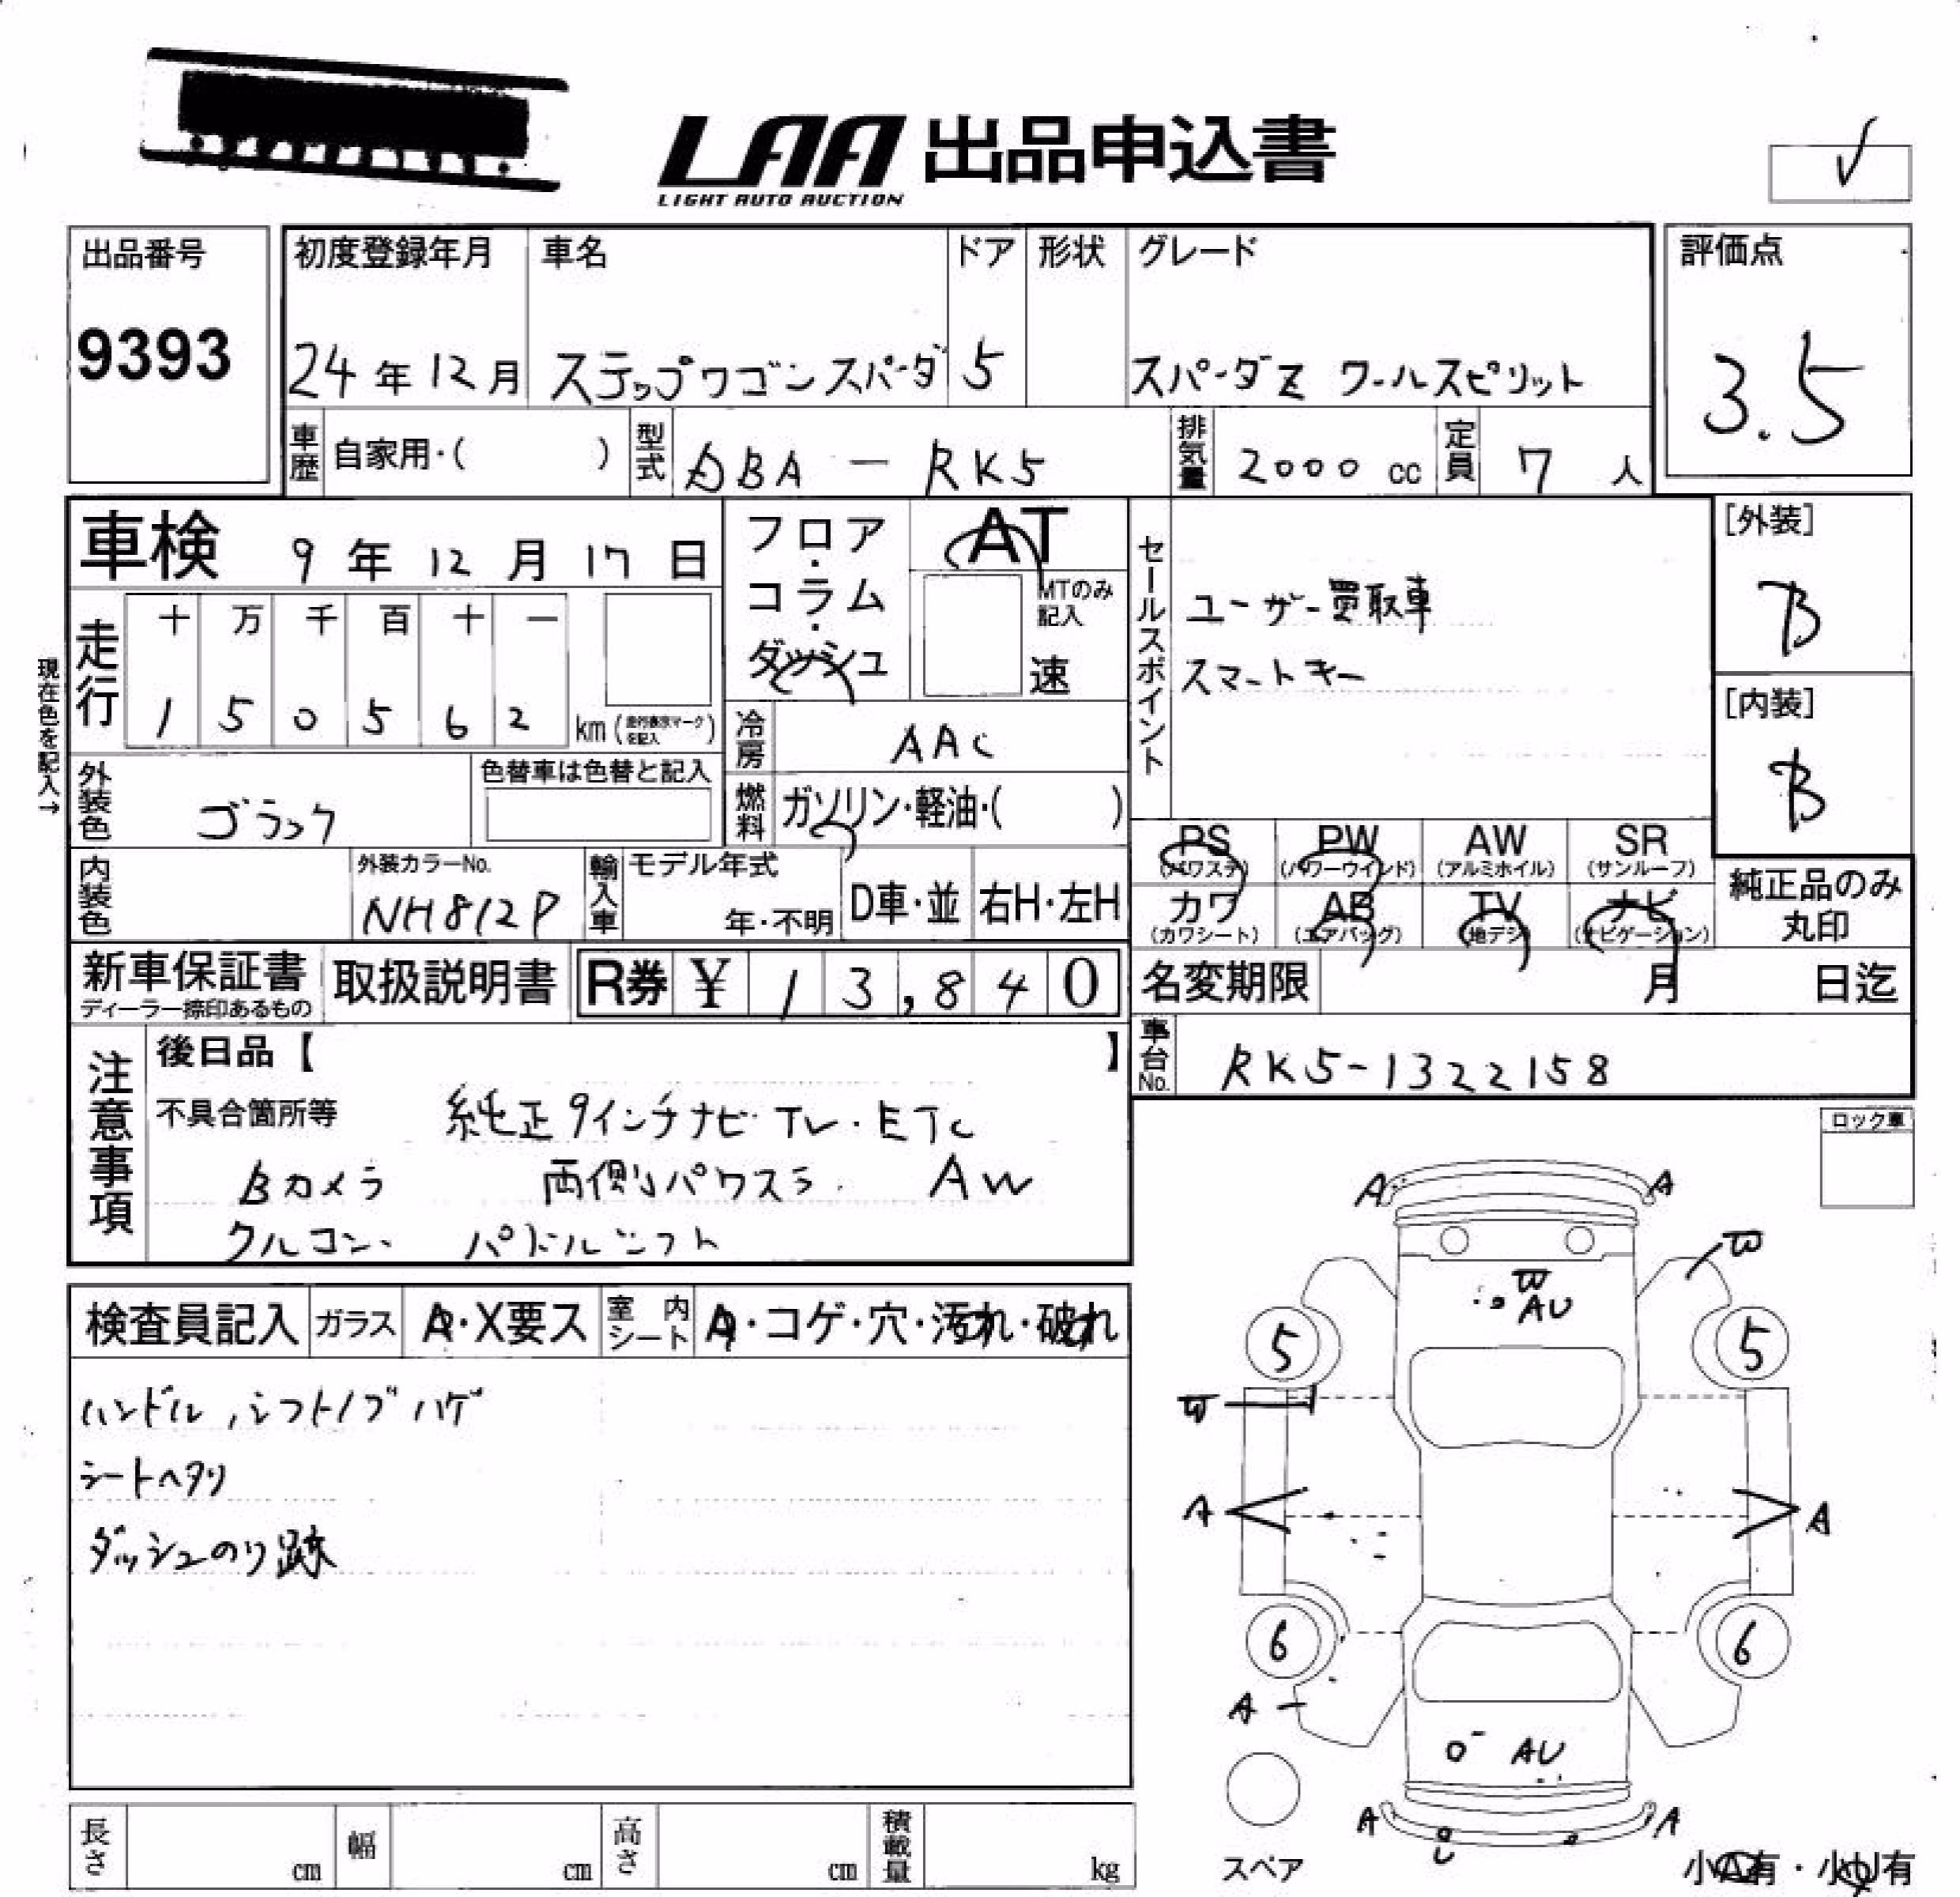 LAA 出品申込書
LIGHT AUTO AUCTION
出品番号
9393
初度登録年月
24年12月
車名
ステップワゴンスパーダ
ドア
5
形状
グレード
スパーダZ クールスピリット
評価点
3.5
車歴 自家用・( )
型式 DBA - RK5
排気量 2000 cc
定員 7 人
車検 9年12月17日
現在色を記入→
走行
十 万 千 百 十 一
1 5 0 5 6 2 km (走行表示マークを記入)
フロア・コラム・ダッシュ
AT
MTのみ記入
速
冷房 AAC
燃料 ガソリン・軽油・( )
セールスポイント
ユーザー買取車
スマートキー
[外装]
B
[内装]
B
外装色
色替車は色替と記入
内装色
外装カラーNo.
NH812P
輸入車
モデル年式
年・不明
D車・並
右H・左H
PS (パワステ)
PW (パワーウインド)
AW (アルミホイル)
SR (サンルーフ)
カワ (カワシート)
AB (エアバッグ)
TV (地デジ)
ナビ (ナビゲーション)
純正品のみ丸印
新車保証書
ディーラー捺印あるもの
取扱説明書
R券 ¥ 13,840
名変期限 月 日迄
車台No. RK5-1322158
注意事項
後日品【 】
不具合箇所等
純正9インチナビ・TV・ETC
Bカメラ 両側パワスラ. AW
クルコン、 パドルシフト
ロック車
検査員記入
ガラス A・X要ス
室内シート A・コゲ・穴・汚れ・破れ
ハンドル,シフトノブハゲ
シートヘタリ
ダッシュのり跡
A A
W
W
AU
5 5
W
A A
6 6
A
AU
A A
U
スペア
小A有・小U有
長さ cm
幅 cm
高さ cm
積載量 kg